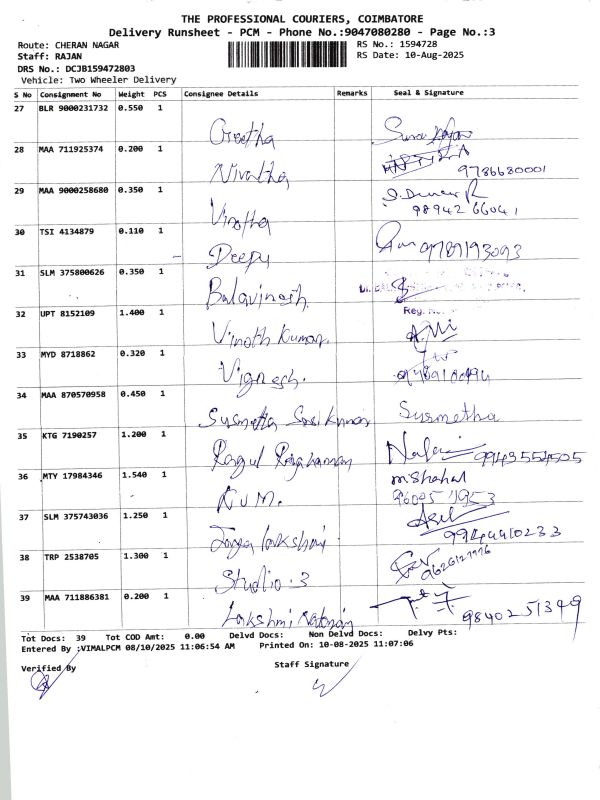 THE PROFESSIONAL COURIERS, COIMBATORE
Delivery Runsheet - PCM - Phone No.:9047080280 - Page No.:3
Route: CHERAN NAGAR RS No.: 1594728
Staff: RAJAN RS Date: 10-Aug-2025
DRS No.: DCJB159472803
Vehicle: Two Wheeler Delivery
S No Consignment No Weight PCS Consignee Details Remarks Seal & Signature
27 BLR 9000231732 0.550 1 Geetha
28 MAA 711925374 0.200 1 Nivetha 9786680001
29 MAA 9000258680 0.350 1 Vinotha 98942 66041
30 TSI 4134879 0.110 1 Deepu 9789193093
31 SLM 375800626 0.350 1 Balavinesh.
32 UPT 8152109 1.400 1 Vinoth Kumar. Reg.
33 MYD 8718862 0.320 1 Vignesh.
34 MAA 870570958 0.450 1 Susmetha Sasi kumar Susmetha
35 KTG 7190257 1.200 1 Ragul 99435 54505
36 MTY 17984346 1.540 1 K.U.M.
37 SLM 375743036 1.250 1 Jaya lakshmi 9944410233
38 TRP 2538705 1.300 1 Studio.3
39 MAA 711886381 0.200 1 Lakshmi 98402 51349
Tot Docs: 39 Tot COD Amt: 0.00 Delvd Docs: Non Delvd Docs: Delvy Pts:
Entered By :VIMALPCM 08/10/2025 11:06:54 AM Printed On: 10-08-2025 11:07:06
Verified By Staff Signature